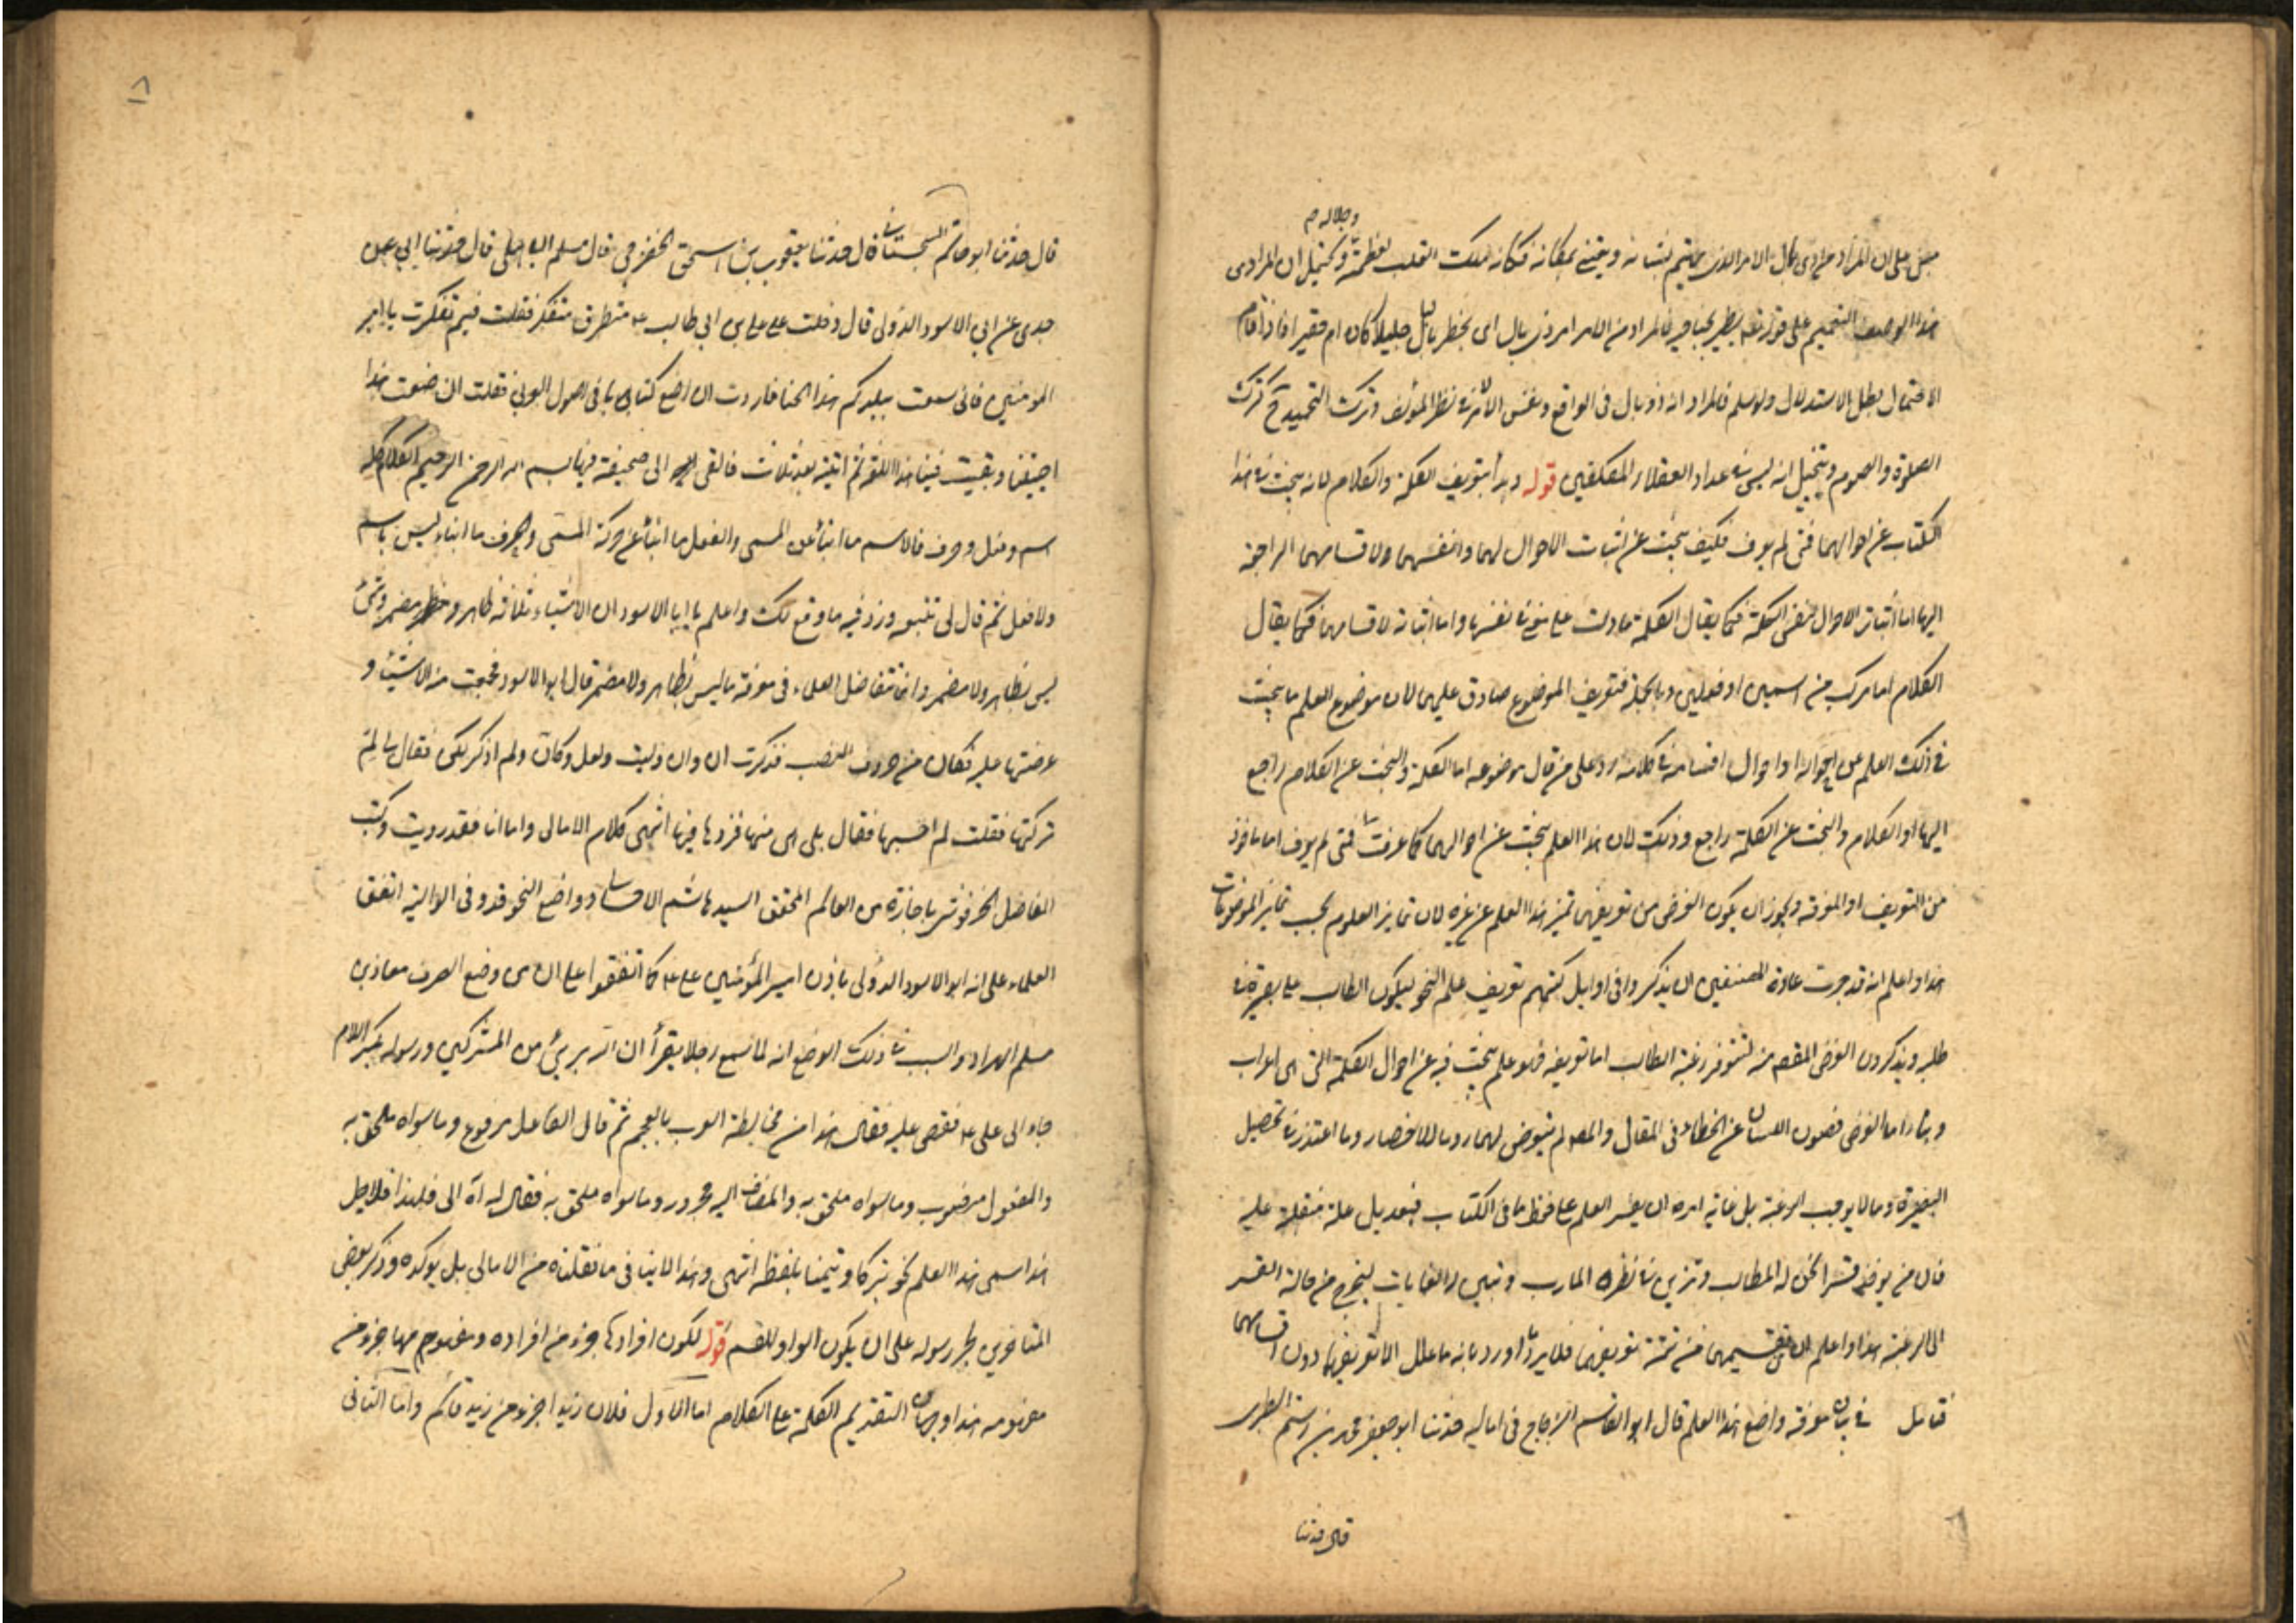 وجلاله م
مبنى على ان المراد من ذى بال الامر الذى يهتم بشانه ويعتنى بمكانه فكانه ملك القلب لعظمته ويحتمل ان المراد من
هذا الوصف التعميم على فالمراد من الامر امر ذى بال اى يخطر بالبال جليلا كان ام حقيرا فاذا قام
الاحتمال بطل الاستدلال ولو سلم فالمراد انه ذو بال فى الواقع وعسى الا نظر المؤلف وترك التحميد ح كترك
الصلوة والصوم ويتخيل انه ليس فى عداد العقلاء المكلفين قوله وبدأ بتعريف الكلمة والكلام لانه يبحث فى هذا
الكتاب عن احوالهما فمتى لم يعرف فكيف يبحث عن اثبات الاحوال لهما وانفسهما ولاقسامهما الراجعة
اليهما اما اثبات الاحوال لنفس الكلمة فكما يقال الكلمة ما دلت على معنى فى نفسها واما اثباته لاقسامهما فكما يقال
الكلام اما مركب من اسمين او فعلين وبالجملة فتعريف الموضوع صادق عليهما لان موضوع العلم ما يبحث
فى ذلك العلم عن احواله او احوال اقسامه فى كلامه رد على من قال موضوعه اما الكلمة والبحث عن الكلام راجع
اليها او الكلام والبحث عن الكلمة راجع وذلك لان هذا العلم يبحث عن احوالهما كما عرفت فمتى لم يعرف اما ماخوذ
من التعريف او المعرفة ويجوز ان يكون الغرض من تعريفهما تميز هذا العلم عن غيره لان تمايز العلوم بحسب تمايز الموضوعات
هذا واعلم انه قد جرت عادة المصنفين ان يذكروا فى اوايل كتبهم تعريف علم النحو ليكون الطالب على بصيرة فى
طلبه ويذكرون الغرض المقصود منه لتتوفر رغبة الطالب اما تعريفه فهو علم يبحث فيه عن احوال الكلمة التى هى اعراب
وبناء اما الغرض فصون اللسان عن الخطاء فى المقال والمصنف لم يتعرض لهما روما للاختصار وما اعتذر فى تحصيل
البصيرة وما لا يوجب الرغبة بل غاية امره ان يقسر العلم على حفظ ما فى الكتاب فبعد يدل على علة منقلة عليه
فان من يوضح قسر الحق له المطالب وتزين فى نظره المارب وتبين له الغايات ليخرج من حالة القسر
الى الرغبة هذا واعلم ان تقسيمهما من تتمة تعريفهما فلا يرد ما اورد بانه ما علل الا تعريفهما دون اقسامهما
فتامل فى بيان معرفة واضع هذا العلم قال ابو القاسم الزجاج فى اماليه حدثنا ابو جعفر محمد بن رستم الطبرى
قال حدثنا
٨
قال حدثنا ابو حاتم السجستانى قال حدثنا يعقوب بن اسحق الحضرمى قال مسلم الباهلى قال حدثنا ابى عن
جدى عن ابى الاسود الدؤلى قال دخلت على على بن ابى طالب ع متطرق متفكر فقلت فيم تفكرت يا امير
المؤمنين فانى سمعت ببلدكم هذا لحنا فاردت ان اضع كتابا فى اصول العربى فقلت ان صنعت هذا
احييتنا وبقيت فينا هذا اللغة ثم اتيته بعد ثلاث فالقى الى صحيفة فيها بسم الله الرحمن الرحيم الكلام كله
اسم وفعل وحرف فالاسم ما انبأ عن المسمى والفعل ما انبأ عن حركة المسمى والحرف ما انباء ليس باسم
ولا فعل ثم قال لى تتبعه وزد فيه ما وقع لك واعلم يا ابا الاسود ان الاشياء ثلاثة ظاهر ومضمر وشئ
ليس بظاهر ولا مضمر وانما تتفاضل العلماء فى معرفة ما ليس بظاهر ولا مضمر قال ابو الاسود فجمعت منه الاشياء و
عرضتها عليه فكان من حروف النصب فذكرت ان وان وليت ولعل وكان ولم اذكر لكن فقال لى لم
تركتها فقلت لم احسبها فقال بلى هى منها فزدها فيها انتهى كلام الامالى واما انا فقد رويت وكتب
الفاضل باجازة من العالم المحقق السيد هاشم الاحسائى وواضع النحو قد وفى الوافية اتفق
العلماء على انه ابو الاسود الدؤلى باذن امير المؤمنين على ع كما اتفقوا على ان من وضع الصرف معاذ بن
مسلم الهراء والسبب فى ذلك الوضع انه لما سمع رجلا يقرأ ان الله برئ من المشركين ورسوله بكسر اللام
جاء الى على ع فقص عليه فقال هذا من مخالطة العرب بالعجم ثم قال الفاعل مرفوع وما سواه ملحق به
والمفعول منصوب وما سواه ملحق به والمضاف اليه مجرور وما سواه ملحق به فقال له الى فلهذا فلاجل
هذا سمى هذا العلم نحو تبركا وتيمنا بلفظه انتهى وهذا لا ينافى ما نقلناه من الامالى بل يؤكده وذكر بعض
المتاخرين بجر رسوله على ان يكون الواو للقسم قوله لكون افرادها جزء من افراده ومفهومها جزء من
مفهومه هذا وجهان التقديم الكلمة على الكلام اما الاول فلان زيدا جزء من زيد قائم واما الثانى